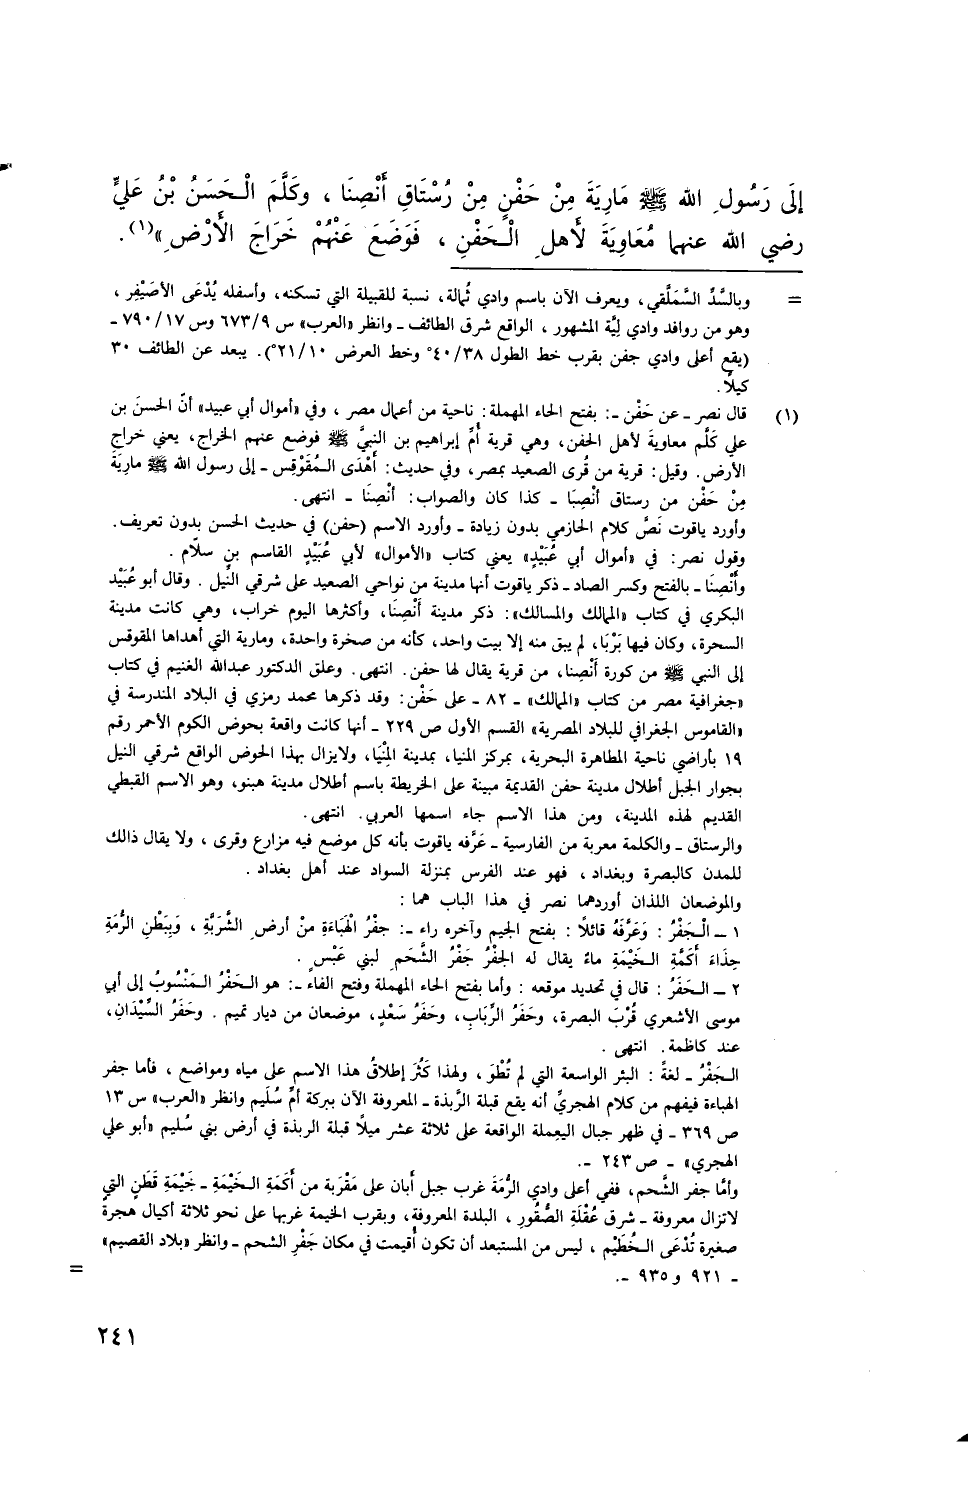 إلَى رَسُولِ الله ﷺ مَارِيَةَ مِنْ حَفْنٍ مِنْ رُسْتَاقِ أَنْصِنَا ، وكَلَّمَ الْحَسَنُ بْنُ عَلِيٍّ
رضي الله عنهما مُعَاوِيَةَ لأهلِ الْحَفْنِ ، فَوَضَعَ عَنْهُمْ خَرَاجَ الأَرْضِ»(١).
= وبالسَّدِّ السَّمَلَّقي، ويعرف الآن باسم وادي ثُمالة، نسبة للقبيلة التي تسكنه، وأسفله يُدْعَى الأصَيْفِر ،
وهو من روافد وادي لِيَّة المشهور ، الواقع شرق الطائف ــ وانظر «العرب» س ٦٧٣/٩ وس ٧٩٠/١٧ ــ
(يقع أعلى وادي جفن بقرب خط الطول ٤٠/٣٨° وخط العرض ٢١/١٠°). يبعد عن الطائف ٣٠
كيلاً.
(١) قال نصر ــ عن حَفْن ــ: بفتح الحاء المهملة: ناحية من أعمال مصر ، وفي «أموال أبي عبيد» أنّ الحسنَ بن
علي كَلَّم معاويةَ لأهل الحفن، وهي قرية أُمِّ إبراهيم بن النبيِّ ﷺ فوضع عنهم الخراج، يعني خراج
الأرض. وقيل: قرية من قُرى الصعيد بمصر، وفي حديث: أَهْدَى المُقَوْقِس ــ إلى رسول الله ﷺ ماريَةَ
مِنْ حَفْن من رستاق أنْصِبَا ــ كذا كان والصواب: أَنْصِنَا ــ انتهى.
وأورد ياقوت نَصَّ كلام الحازمي بدون زيادة ــ وأورد الاسم (حفن) في حديث الحسن بدون تعريف.
وقول نصر: في «أموال أبي عُبَيْدٍ» يعني كتاب «الأموال» لأبي عُبَيْدٍ القاسم بنِ سلّام .
وأَنْصِنَا ــ بالفتح وكسر الصاد ــ ذكر ياقوت أنها مدينة من نواحي الصعيد على شرقي النِّيل . وقال أبو عُبَيْد
البكري في كتاب «الممالك والمسالك»: ذكر مدينة أنْصِنَا، وأكثرها اليوم خراب، وهي كانت مدينة
السحرة، وكان فيها بَرْبَا، لم يبق منه إلا بيت واحد، كأنه من صخرة واحدة، ومارية التي أهداها المقوقس
إلى النبي ﷺ من كورة أَنْصِنا، من قرية يقال لها حفن. انتهى. وعلق الدكتور عبدالله الغنيم في كتاب
«جغرافية مصر من كتاب «الممالك» ــ ٨٢ ــ على حَفْن: وقد ذكرها محمد رمزي في البلاد المندرسة في
«القاموس الجغرافي للبلاد المصرية» القسم الأول ص ٢٢٩ ــ أنها كانت واقعة بحوض الكوم الأحمر رقم
١٩ بأراضي ناحية المطاهرة البحرية، بمركز المنيا، بمدينة المِنْيَا، ولايزال بهذا الحوض الواقع شرقي النيل
بجوار الجبل أطلال مدينة حفن القديمة مبينة على الخريطة باسم أطلال مدينة هبنو، وهو الاسم القبطي
القديم لهذه المدينة، ومن هذا الاسم جاء اسمها العربي. انتهى.
والرستاق ــ والكلمة معربة من الفارسية ــ عَرَّفه ياقوت بأنه كل موضع فيه مزارع وقرى ، ولا يقال ذالك
للمدن كالبصرة وبغداد ، فهو عند الفرس بمنزلة السواد عند أهل بغداد .
والموضعان اللذان أوردهما نصر في هذا الباب هما :
١ ــ الْجَفْرُ : وَعَرَّفَهُ قائلاً : بفتح الجيم وآخره راء ــ: جفْرُ الْهَبَاءَةِ مِنْ أرضِ الشَّرَبَّةِ ، وَبِبَطْنِ الرُّمَةِ
حِذَاءَ أَكَمَّةِ الخَيْمَةِ ماءٌ يقال له الجفْرُ جَفْرُ الشَّحَمِ لبني عَبْسٍ .
٢ ــ الحَفَرُ : قال في تحديد موقعه : وأما بفتح الحاء المهملة وفتح الفاءِ ــ: هو الحَفَرُ المَنْسُوبُ إلى أبي
موسى الأشعري قُرْبَ البصرة، وحَفَرُ الرِّبَابِ، وحَفَرُ سَعْدٍ، موضعان من ديار تميم . وحَفَرُ السِّيْدَانِ،
عند كاظمة. انتهى .
الجَفْرُ ــ لغةً : البئر الواسعة التي لم تُطْوَ ، ولهذا كَثُرَ إطلاقُ هذا الاسم على مياه ومواضع ، فأما جفر
الهباءة فيفهم من كلام الهجريِّ أنه يقع قبلة الرَّبذة ــ المعروفة الآن ببركة أُمِّ سُلَيم وانظر «العرب» س ١٣
ص ٣٦٩ ــ في ظهر جبال اليعملة الواقعة على ثلاثة عشر ميلاً قبلة الربذة في أرض بني سُليم «أبو علي
الهجري» ــ ص ٢٤٣ ــ.
وأمَّا جفر الشَّحم، ففي أعلى وادي الرُّمَةَ غرب جبل أبان على مَقْرَبة من أَكَمَةِ الخَيْمَةِ ــ خَيْمَةِ قَطَنٍ التي
لاتزال معروفة ــ شرق عُقْلَةِ الصُّقُور ، البلدة المعروفة، وبقرب الخيمة غربها على نحو ثلاثة أكيال هجرة
صغيرة تُدْعَى الخُطَيْم ، ليس من المستبعد أن تكون أُقيمت في مكان جَفْرِ الشحم ــ وانظر «بلاد القصيم»
ــ ٩٢١ و ٩٣٥ ــ. =
٢٤١